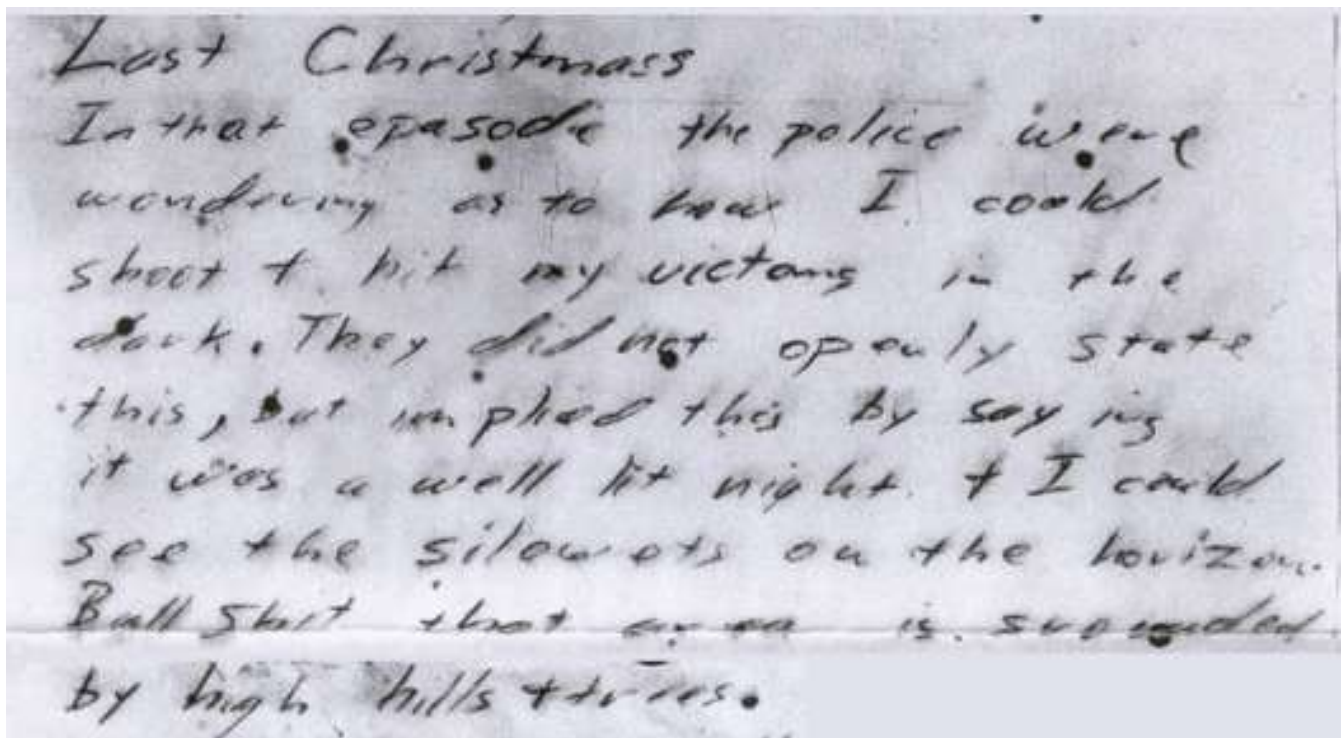 Last Christmass
In that epasode the police were
wondering as to how I could
shoot & hit my victoms in the
dark. They did not openly state
this, but implied this by saying
it was a well lit night & I could
see the silowets on the horizon.
Bullshit that area is srounded
by high hills & trees.